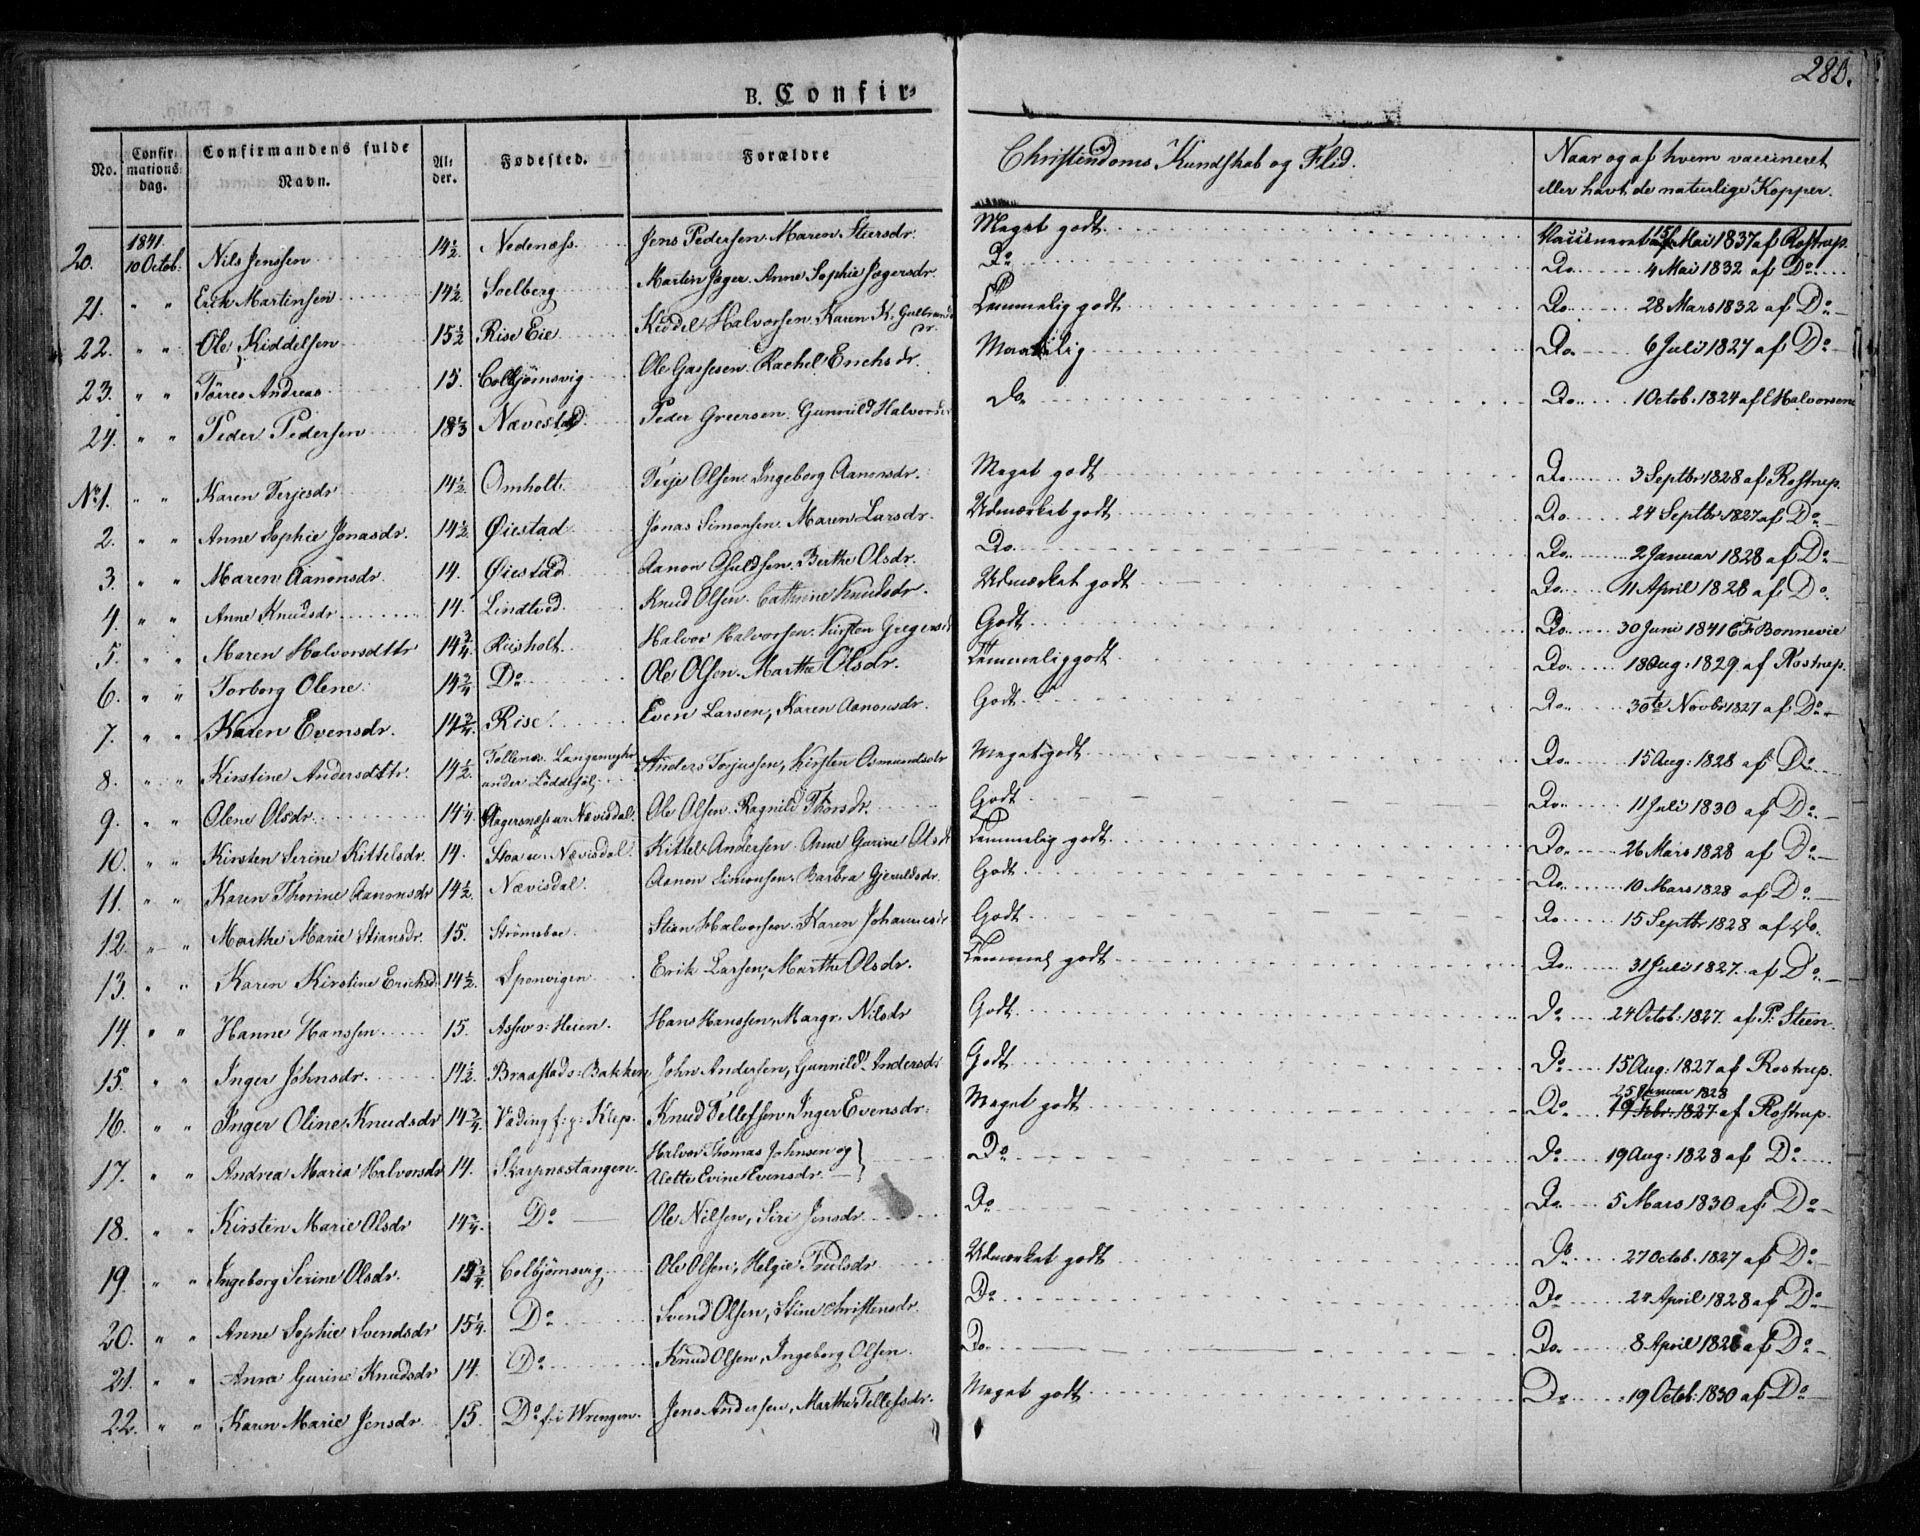 280.
B. Confir-
No. Confirmations dag. Confirmandens fulde Navn. Alder. Fødested. Forældre Christendoms Kundskab og Flid. Naar og af hvem vaccineret eller havt de naturlige Kopper.
20. 1841 10 Octob: Nils Jenssen 14½ Nedenæss. Jens Pedersen. Maren Steersdr. Meget godt Vaccineret 15 Mai 1837 af Rostrup.
21. " " Erik Martinsen 14½ Soelberg Martin Jæger. Anne Sophie Jægersdr. Do Do 4 Mai 1832 af Do
22. " " Ole Kiddelsen 15½ Rise Eie Kiddel Halvorsen. Karen K. Temmelig godt Do 28 Mars 1832 af Do
23. " " Tørres Andreas 15. Colbjørnsvig Ole Gassesen. Rachel Erichsdr. Maadelig Do 6 Juli 1827 af Do
24. " " Peder Pedersen 18⅓ Nævestad Peder Greersen. Gunnild Halvorsdr Do Do 1 Octob. 1824 af E Halvorsen
No 1. " " Karen Terjesdr 14½ Omholt. Terje Olsen. Ingeborg Aanonsdr. Meget godt Do 3 Septbr 1828 af Rostrup.
2. " " Anne Sophie Jonasdr. 14½ Øiestad Jonas Simonsen. Maren Larsdr. Udmærket godt Do 24 Septbr 1827 af Do
3. " " Maren Aanonsdr. 14. Øiestad Aanon Asuldsen. Berthe Olsdr. Do Do 2 Januar 1828 af Do
4. " " Anne Knudsdr 14. Lindtved. Knud Olsen. Cathrine Knudsdr. Udmærket godt Do 11 April 1828 af Do
5. " " Maren Halvorsdttr 14¾ Riisholt. Halvor Halvorsen. Kirsten Gregersd Godt Do 30 Juni 1841 C F Bonnevie
6. " " Torborg Olene 14¾ Do Ole Olsen. Marthe Olsdr. Temmelig godt Do 18 Aug: 1829 af Rostrup.
7. " " Karen Evensdr. 14¾ Rise Even Larsen, Karen Aanonsdr. Godt Do 30te Novbr 1827 af Do
8. " " Kirstine Andersdttr. 14½ Langemyhr under Løddesøl Anders Torjussen, Kirsten Osmundsdr Meget godt Do 15 Aug: 1828 af Do
9. " " Olene Olsdr 14¼ Hagersnæs ur Nævisdal. Ole Olsen. Ragnild Thorsdr. Godt Do 11 Juli 1830 af Do
10. " " Kirsten Serine Kittelsdr. 14. Stoa u. Nævisdal. Kittel Andersen. Anne Gurine Olsd Temmelig godt Do 26 Mars 1828 af Do
11. " " Karen Thorine Aanonsdr 14½ Nævisdal. Aanon Simonsen. Barbra Gjeruldsdr. Godt Do 10 Mars 1828 af Do
12. " " Marthe Marie Stiansdr. 15. Strømsboe Stian Halvorsen. Karen Johannesdr Godt Do 15 Septbr 1828 af Do
13. " " Karen Kirstine Ericksd: 14½ Sponvigen Erik Larsen, Marthe Olsdr. Temmel godt Do 31 Juli 1827. af Do
14. " " Hanne Hanssen 15. Asser: Heien. Hans Hanssen, Margr. Nilsdr Godt Do 24 Octob: 1827. af P. Steen.
15. " " Inger Johnsdr. 14½ Braastads: Bakken John Andersen, Gunnild Andersdr Godt Do 15 Aug: 1827 af Rostrup.
16. " " Inger Oline Knudsdr 14¾ Vading f. p: Klep. Knud Tellefsen, Inger Evensdr. Meget godt Do 25 Januar 1828 19 Febr. 1827 af Rostrup.
17. " " Andrea Maria Halvorsdr 14. Skarpnæstangen. Halvor Thomas Johnsen og Alette Evine Evensdr. Do Do 19 Aug: 1828 af Do
18. " " Kirsten Marie Olsdr 14¾. Do Ole Nilsen, Siri Jensdr Do Do 5 Mars 1830 af Do
19. " " Ingeborg Serine Olsdr. 15¾ Colbjørnsvig Ole Olsen, Helgie Trulsdr Udmærket godt Do 27 Octob: 1827 af Do
20. " " Anne Sophie Svendsdr 15¼. Do Svend Olsen, Stine Christensdr. Do Do 24 April 1828 af Do
21. " " Anna Gurine Knudsdr 14. Do Knud Olsen, Ingeborg Olsen. Do Do 8 April 1828 af Do
22. " " Karen Marie Jensdr 15. Do f. i Wrengen. Jens Andersen, Marthe Tellefsdr. Meget godt Do 19 Octob: 1830 af Do